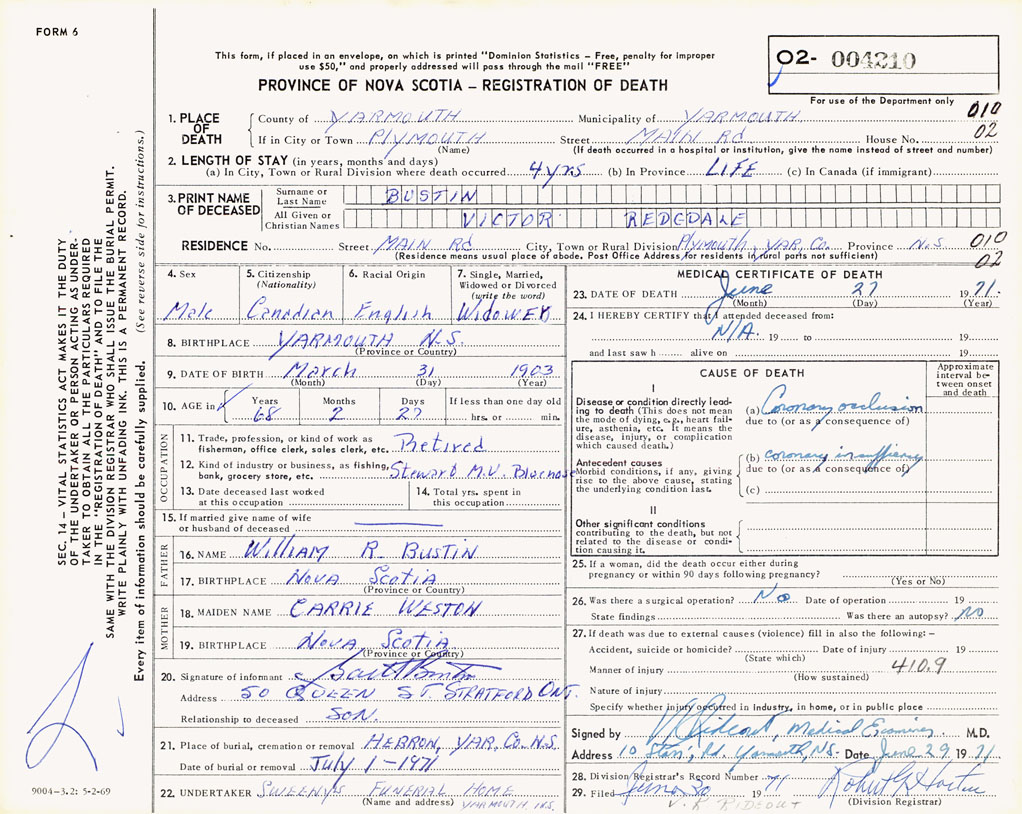 FORM 6
This form, if placed in an envelope, on which is printed "Dominion Statistics – Free, penalty for improper
use $50," and properly addressed will pass through the mail "FREE"
PROVINCE OF NOVA SCOTIA – REGISTRATION OF DEATH
02- 004210
For use of the Department only
1. PLACE OF DEATH County of YARMOUTH Municipality of YARMOUTH 010
If in City or Town PLYMOUTH Street MAIN Rd House No. 02
(Name) (If death occurred in a hospital or institution, give the name instead of street and number)
2. LENGTH OF STAY (in years, months and days)
(a) In City, Town or Rural Division where death occurred 4 yrs (b) In Province LIFE (c) In Canada (if immigrant)
3. PRINT NAME OF DECEASED Surname or Last Name BUSTIN
All Given or Christian Names VICTOR REDGDALE
RESIDENCE No. Street MAIN Rd City, Town or Rural Division Plymouth, YAR. Co. Province N.S. 010
(Residence means usual place of abode. Post Office Address for residents in rural parts not sufficient) 02
4. Sex Male
5. Citizenship (Nationality) Canadian
6. Racial Origin English
7. Single, Married, Widowed or Divorced (write the word) WIDOWER
8. BIRTHPLACE YARMOUTH N.S.
(Province or Country)
9. DATE OF BIRTH March 31 1903
(Month) (Day) (Year)
10. AGE in Years 68 Months 2 Days 27 If less than one day old hrs. or min.
OCCUPATION
11. Trade, profession, or kind of work as fisherman, office clerk, sales clerk, etc. Retired
12. Kind of industry or business, as fishing, bank, grocery store, etc. Steward M.V. Bluenose
13. Date deceased last worked at this occupation
14. Total yrs. spent in this occupation
15. If married give name of wife or husband of deceased
FATHER
16. NAME William R. BUSTIN
17. BIRTHPLACE NOVA SCOTIA
(Province or Country)
MOTHER
18. MAIDEN NAME CARRIE WESTON
19. BIRTHPLACE NOVA SCOTIA
(Province or Country)
20. Signature of informant
Address 50 QUEEN ST. STRATFORD ONT.
Relationship to deceased SON.
21. Place of burial, cremation or removal HEBRON, YAR. CO. N.S.
Date of burial or removal July 1 - 1971
22. UNDERTAKER SWEENY'S FUNERAL HOME
(Name and address) YARMOUTH, N.S.
MEDICAL CERTIFICATE OF DEATH
23. DATE OF DEATH June 27 1971.
(Month) (Day) (Year)
24. I HEREBY CERTIFY that I attended deceased from:
N/A. 19 to 19
and last saw h alive on 19
CAUSE OF DEATH
Approximate interval between onset and death
I
Disease or condition directly leading to death (This does not mean the mode of dying, e.g., heart failure, asthenia, etc. It means the disease, injury, or complication which caused death.)
(a) Coronary occlusion
due to (or as a consequence of)
Antecedent causes
Morbid conditions, if any, giving rise to the above cause, stating the underlying condition last.
(b) coronary insufficiency
due to (or as a consequence of)
(c)
II
Other significant conditions contributing to the death, but not related to the disease or condition causing it.
25. If a woman, did the death occur either during pregnancy or within 90 days following pregnancy?
(Yes or No)
26. Was there a surgical operation? No Date of operation 19
State findings Was there an autopsy? NO
27. If death was due to external causes (violence) fill in also the following: –
Accident, suicide or homicide? Date of injury 19
(State which)
Manner of injury 410.9
(How sustained)
Nature of injury
Specify whether injury occurred in industry, in home, or in public place
Signed by V. Rideout, Medical Examiner M.D.
Address 10 Rd. Yarmouth, NS. Date June 29 1971
28. Division Registrar's Record Number 71
29. Filed June 30 1971
V. R RIDEOUT (Division Registrar)
SEC. 14 – VITAL STATISTICS ACT MAKES IT THE DUTY
OF THE UNDERTAKER OR PERSON ACTING AS UNDER-
TAKER TO OBTAIN ALL THE PARTICULARS REQUIRED
IN THE "REGISTRATION OF DEATH" AND TO FILE THE
SAME WITH THE DIVISION REGISTRAR WHO SHALL ISSUE THE BURIAL PERMIT.
WRITE PLAINLY WITH UNFADING INK. THIS IS A PERMANENT RECORD.
Every item of information should be carefully supplied. (See reverse side for instructions.)
9004-3.2: 5-2-69